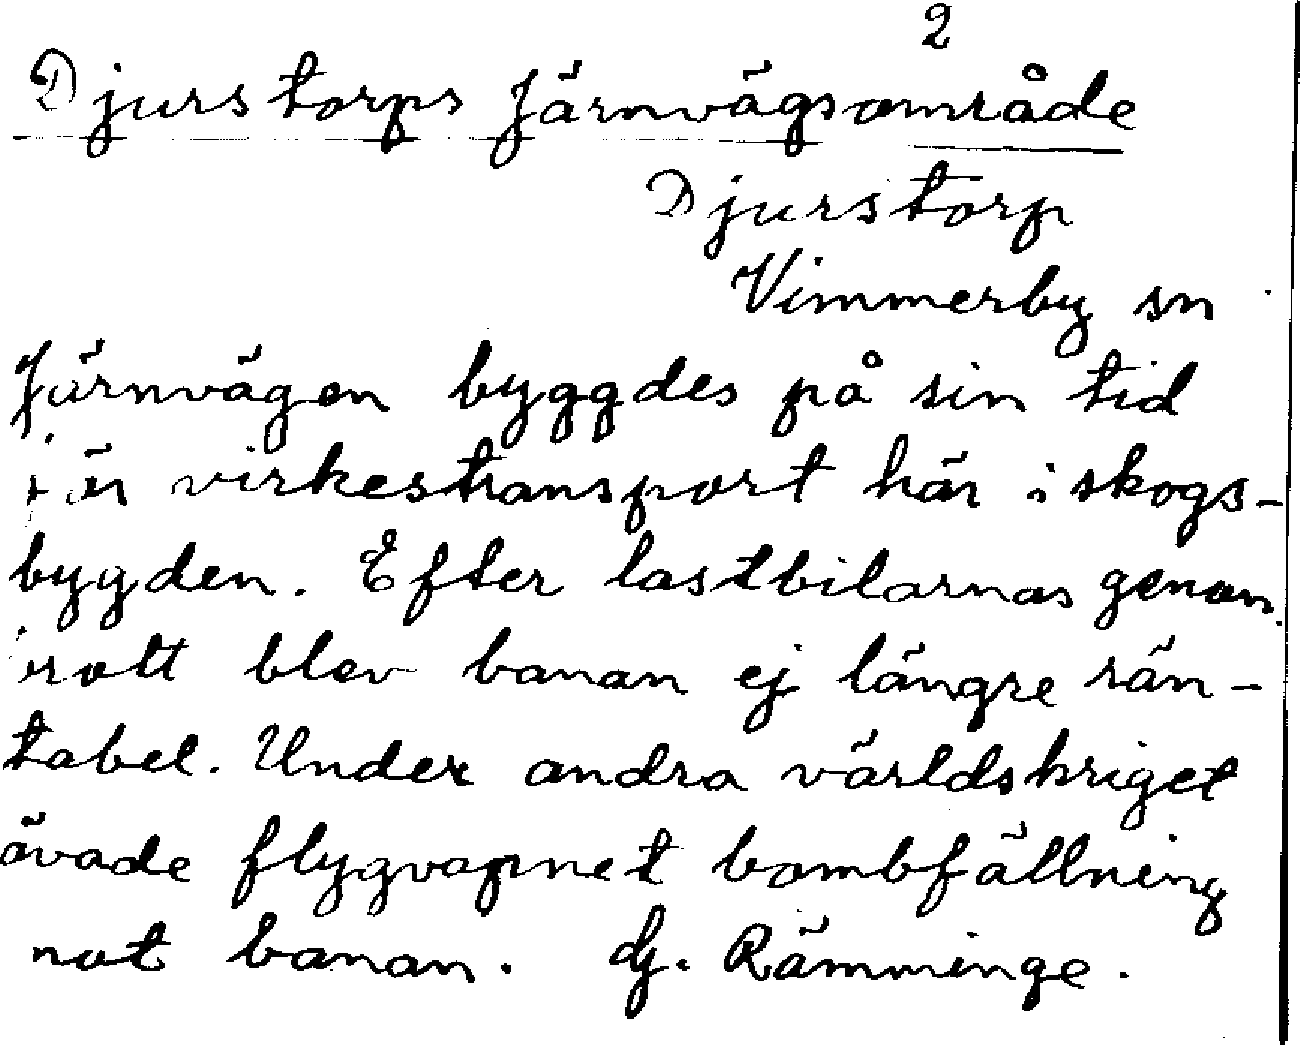 2
Djurstorps Järnvägsområde
Djurstorp
Vimmerby sn
Järnvägen byggdes på sin tid
för virkestransport här i skogs-
bygden. Efter lastbilarnas genom
brott blev banan ej längre rän-
tabel. Under andra världskriget
övade flygvapnet bombfällning
mot banan. dj. Rämminge.